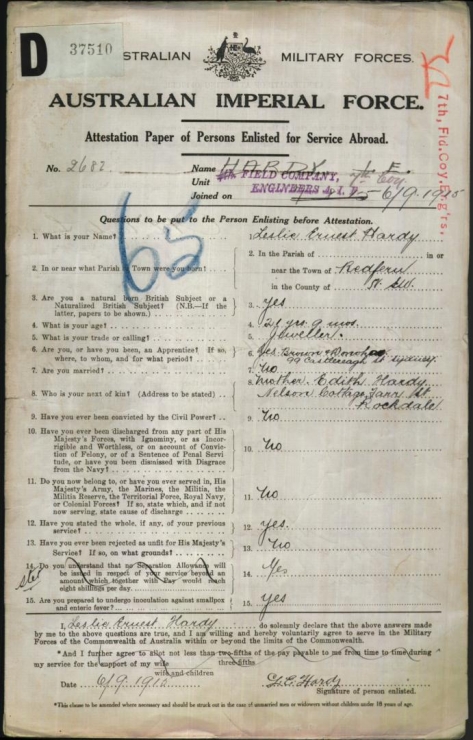 D 37510
AUSTRALIAN MILITARY FORCES.
AUSTRALIAN IMPERIAL FORCE.
7th, Fid.Coy.Eng'rs.
Attestation Paper of Persons Enlisted for Service Abroad.
No. 2682 Name HARDY, L. E.
Unit FIELD COMPANY, 7th Coy
ENGINEERS A.I.F.
Joined on 6/9/1915
65
Questions to be put to the Person Enlisting before Attestation.
1. What is your Name? 1. Leslie Ernest Hardy
2. In or near what Parish or Town were you born? 2. In the Parish of in or
near the Town of Redfern
in the County of
3. Are you a natural born British Subject or a
Naturalized British Subject? (N.B.—If the
latter, papers to be shown.) 3. yes
4. What is your age? 4. 20 yrs. 9 mos.
5. What is your trade or calling? 5. Jeweller
6. Are you, or have you been, an Apprentice? If so,
where, to whom, and for what period? 6. Yes. 99 Castlereagh St Sydney
7. Are you married? 7. No
8. Who is your next of kin? (Address to be stated) 8. Mother. Edith Hardy.
Nelson Cottage, St
Rockdale
9. Have you ever been convicted by the Civil Power? 9. No
10. Have you ever been discharged from any part of His
Majesty's Forces, with Ignominy, or as Incor-
rigible and Worthless, or on account of Convic-
tion of Felony, or of a Sentence of Penal Servi-
tude, or have you been dismissed with Disgrace
from the Navy? 10. No
11. Do you now belong to, or have you ever served in, His
Majesty's Army, the Marines, the Militia, the
Militia Reserve, the Territorial Force, Royal Navy,
or Colonial Forces? If so, state which, and if not
now serving, state cause of discharge 11. No
12. Have you stated the whole, if any, of your previous
service? 12. yes.
13. Have you ever been rejected as unfit for His Majesty's
Service? If so, on what grounds? 13. No
stet 14. Do you understand that no Separation Allowance will
be issued in respect of your service beyond an
amount which together with pay would reach
eight shillings per day. 14. Yes
15. Are you prepared to undergo inoculation against smallpox
and enteric fever? 15. yes
I, Leslie Ernest Hardy do solemnly declare that the above answers made
by me to the above questions are true, and I am willing and hereby voluntarily agree to serve in the Military
Forces of the Commonwealth of Australia within or beyond the limits of the Commonwealth.
*And I further agree to allot not less than two-fifths of the pay payable to me from time to time during
three-fifths
my service for the support of my wife
wife and children
Date 6/9.1915 L. E. Hardy
Signature of person enlisted.
*This clause to be amended where necessary and should be struck out in the case of unmarried men or widowers without children under 18 years of age.